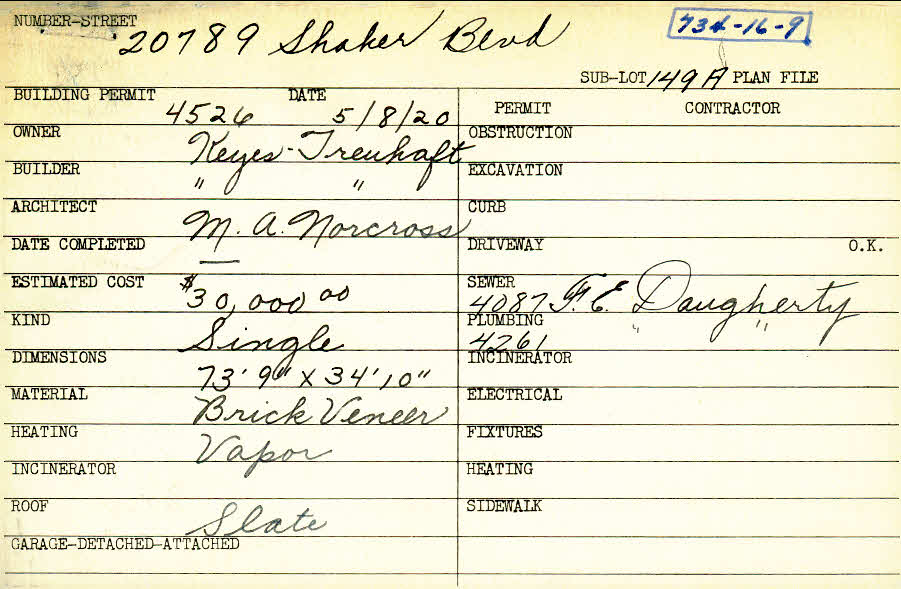 NUMBER-STREET
20789 Shaker Blvd
734-16-9
SUB-LOT 149A PLAN FILE
BUILDING PERMIT 4526 DATE 5/8/20
PERMIT CONTRACTOR
OWNER Keyes-Treuhaft
OBSTRUCTION
BUILDER " "
EXCAVATION
ARCHITECT M. A. Norcross
CURB
DATE COMPLETED —
DRIVEWAY O.K.
ESTIMATED COST $30,000 00
SEWER 4087 F. E. Daugherty
KIND Single
PLUMBING 4261 " "
DIMENSIONS 73' 9" X 34' 10"
INCINERATOR
MATERIAL Brick Veneer
ELECTRICAL
HEATING Vapor
FIXTURES
INCINERATOR
HEATING
ROOF Slate
SIDEWALK
GARAGE-DETACHED-ATTACHED